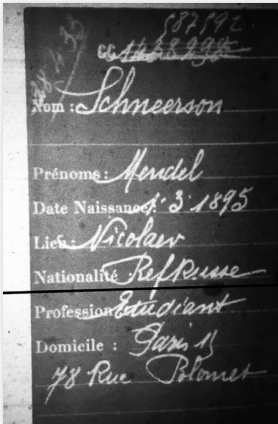 587592
Nom : Schneerson
Prénoms : Mendel
Date Naissance : 1.3.1895
Lieu : Nicolaev
Nationalité Ref Russe
Profession Etudiant
Domicile : Paris 15
78 Rue Blomet